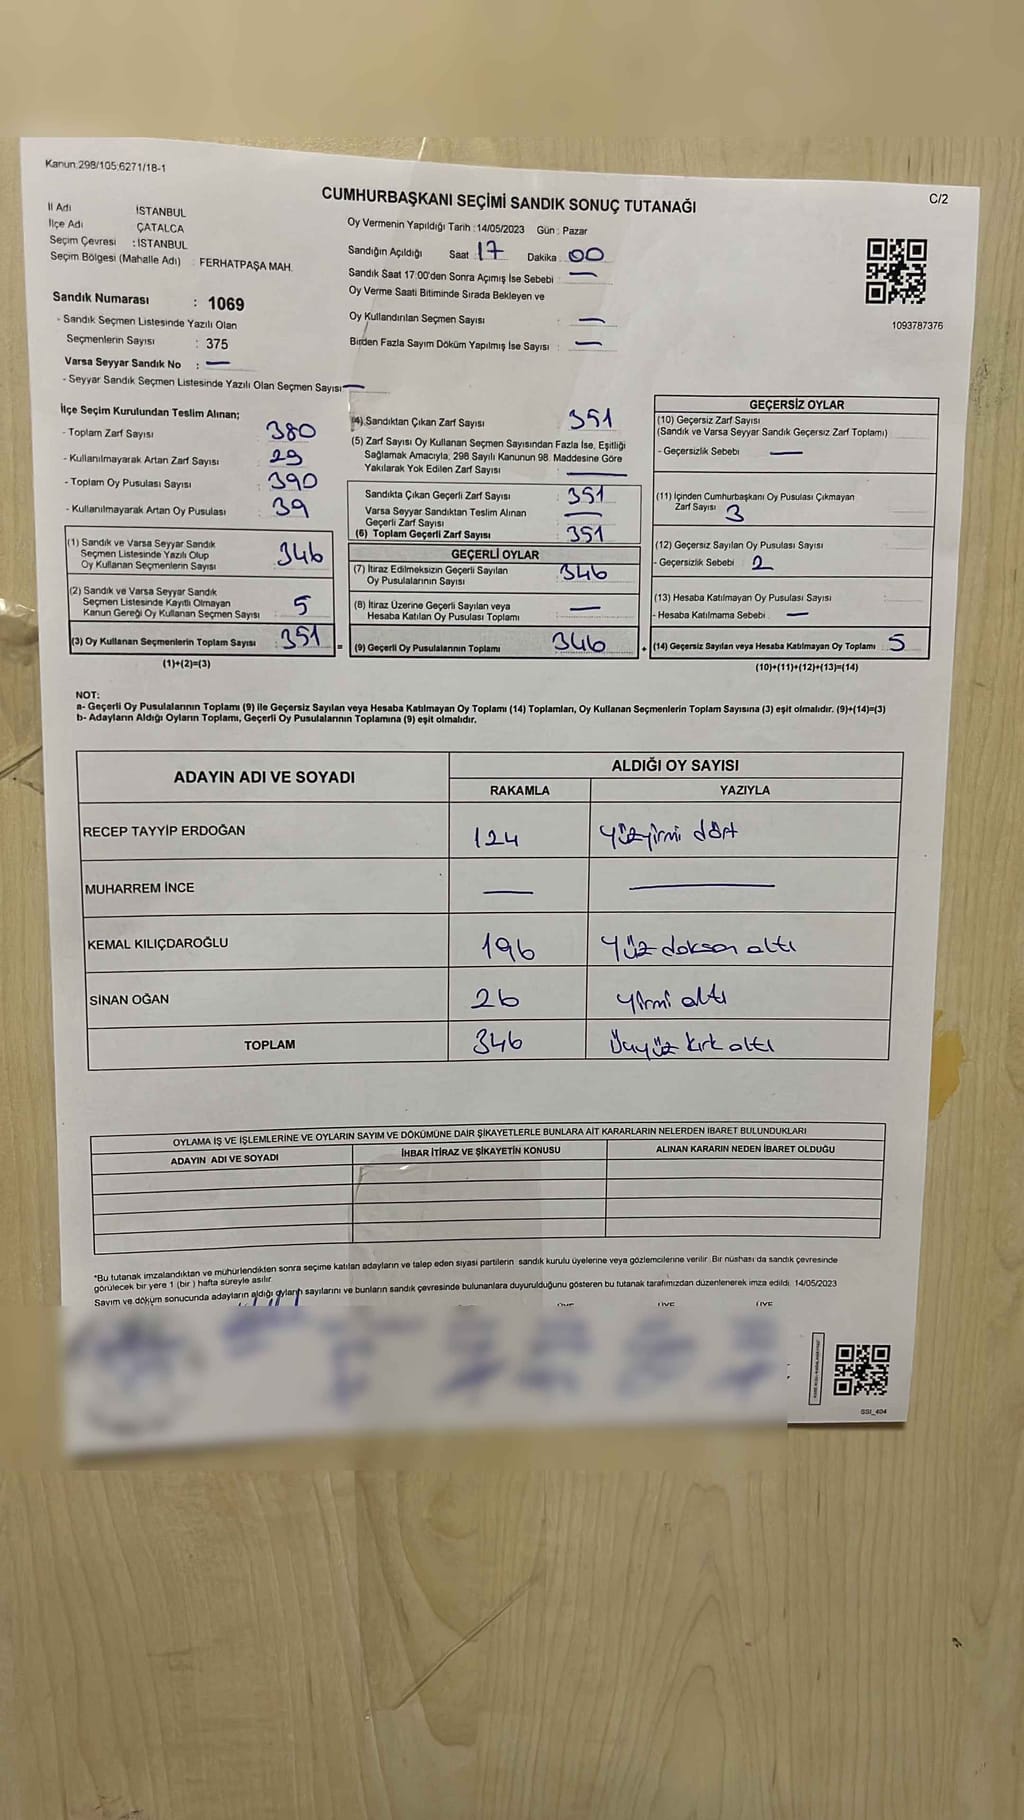 Kanun:298/105;6271/18-1
C/2
CUMHURBAŞKANI SEÇİMİ SANDIK SONUÇ TUTANAĞI
İl Adı İSTANBUL
İlçe Adı ÇATALCA
Seçim Çevresi : İSTANBUL
Seçim Bölgesi (Mahalle Adı) FERHATPAŞA MAH.
Sandık Numarası : 1069
- Sandık Seçmen Listesinde Yazılı Olan
Seçmenlerin Sayısı : 375
Varsa Seyyar Sandık No : —
- Seyyar Sandık Seçmen Listesinde Yazılı Olan Seçmen Sayısı —
Oy Vermenin Yapıldığı Tarih : 14/05/2023 Gün : Pazar
Sandığın Açıldığı Saat 17 Dakika 00
Sandık Saat 17:00'den Sonra Açımış İse Sebebi —
Oy Verme Saati Bitiminde Sırada Bekleyen ve
Oy Kullandırılan Seçmen Sayısı —
Birden Fazla Sayım Döküm Yapılmış İse Sayısı : —
1093787376
İlçe Seçim Kurulundan Teslim Alınan;
- Toplam Zarf Sayısı : 380
- Kullanılmayarak Artan Zarf Sayısı : 29
- Toplam Oy Pusulası Sayısı : 390
- Kullanılmayarak Artan Oy Pusulası : 39
(1) Sandık ve Varsa Seyyar Sandık
Seçmen Listesinde Yazılı Olup
Oy Kullanan Seçmenlerin Sayısı 346
(2) Sandık ve Varsa Seyyar Sandık
Seçmen Listesinde Kayıtlı Olmayan
Kanun Gereği Oy Kullanan Seçmen Sayısı 5
(3) Oy Kullanan Seçmenlerin Toplam Sayısı 351 =
(1)+(2)=(3)
(4) Sandıktan Çıkan Zarf Sayısı 351
(5) Zarf Sayısı Oy Kullanan Seçmen Sayısından Fazla İse, Eşitliği
Sağlamak Amacıyla, 298 Sayılı Kanunun 98. Maddesine Göre
Yakılarak Yok Edilen Zarf Sayısı —
Sandıkta Çıkan Geçerli Zarf Sayısı 351
Varsa Seyyar Sandıktan Teslim Alınan
Geçerli Zarf Sayısı —
(6) Toplam Geçerli Zarf Sayısı 351
GEÇERLİ OYLAR
(7) İtiraz Edilmeksizin Geçerli Sayılan
Oy Pusulalarının Sayısı 346
(8) İtiraz Üzerine Geçerli Sayılan veya
Hesaba Katılan Oy Pusulası Toplamı —
(9) Geçerli Oy Pusulalarının Toplamı 346 +
GEÇERSİZ OYLAR
(10) Geçersiz Zarf Sayısı
(Sandık ve Varsa Seyyar Sandık Geçersiz Zarf Toplamı)
- Geçersizlik Sebebi —
(11) İçinden Cumhurbaşkanı Oy Pusulası Çıkmayan
Zarf Sayısı 3
(12) Geçersiz Sayılan Oy Pusulası Sayısı
- Geçersizlik Sebebi 2
(13) Hesaba Katılmayan Oy Pusulası Sayısı
- Hesaba Katılmama Sebebi —
(14) Geçersiz Sayılan veya Hesaba Katılmayan Oy Toplamı 5
(10)+(11)+(12)+(13)=(14)
NOT:
a- Geçerli Oy Pusulalarının Toplamı (9) ile Geçersiz Sayılan veya Hesaba Katılmayan Oy Toplamı (14) Toplamları, Oy Kullanan Seçmenlerin Toplam Sayısına (3) eşit olmalıdır. (9)+(14)=(3)
b- Adayların Aldığı Oyların Toplamı, Geçerli Oy Pusulalarının Toplamına (9) eşit olmalıdır.
ADAYIN ADI VE SOYADI
ALDIĞI OY SAYISI
RAKAMLA YAZIYLA
RECEP TAYYİP ERDOĞAN 124 Yüzyirmi dört
MUHARREM İNCE — —
KEMAL KILIÇDAROĞLU 196 Yüz doksan altı
SİNAN OĞAN 26 Yirmi altı
TOPLAM 346 Üçyüz kırk altı
OYLAMA İŞ VE İŞLEMLERİNE VE OYLARIN SAYIM VE DÖKÜMÜNE DAİR ŞİKAYETLERLE BUNLARA AİT KARARLARIN NELERDEN İBARET BULUNDUKLARI
ADAYIN ADI VE SOYADI İHBAR İTİRAZ VE ŞİKAYETİN KONUSU ALINAN KARARIN NEDEN İBARET OLDUĞU
*Bu tutanak imzalandıktan ve mühürlendikten sonra seçime katılan adayların ve talep eden siyasi partilerin sandık kurulu üyelerine veya gözlemcilerine verilir. Bir nüshası da sandık çevresinde
görülecek bir yere 1 (bir ) hafta süreyle asılır.
Sayım ve döküm sonucunda adayların aldığı oyların sayılarını ve bunların sandık çevresinde bulunanlara duyurulduğunu gösteren bu tutanak tarafımızdan düzenlenerek imza edildi. 14/05/2023
ÜYE ÜYE ÜYE
SSI_404